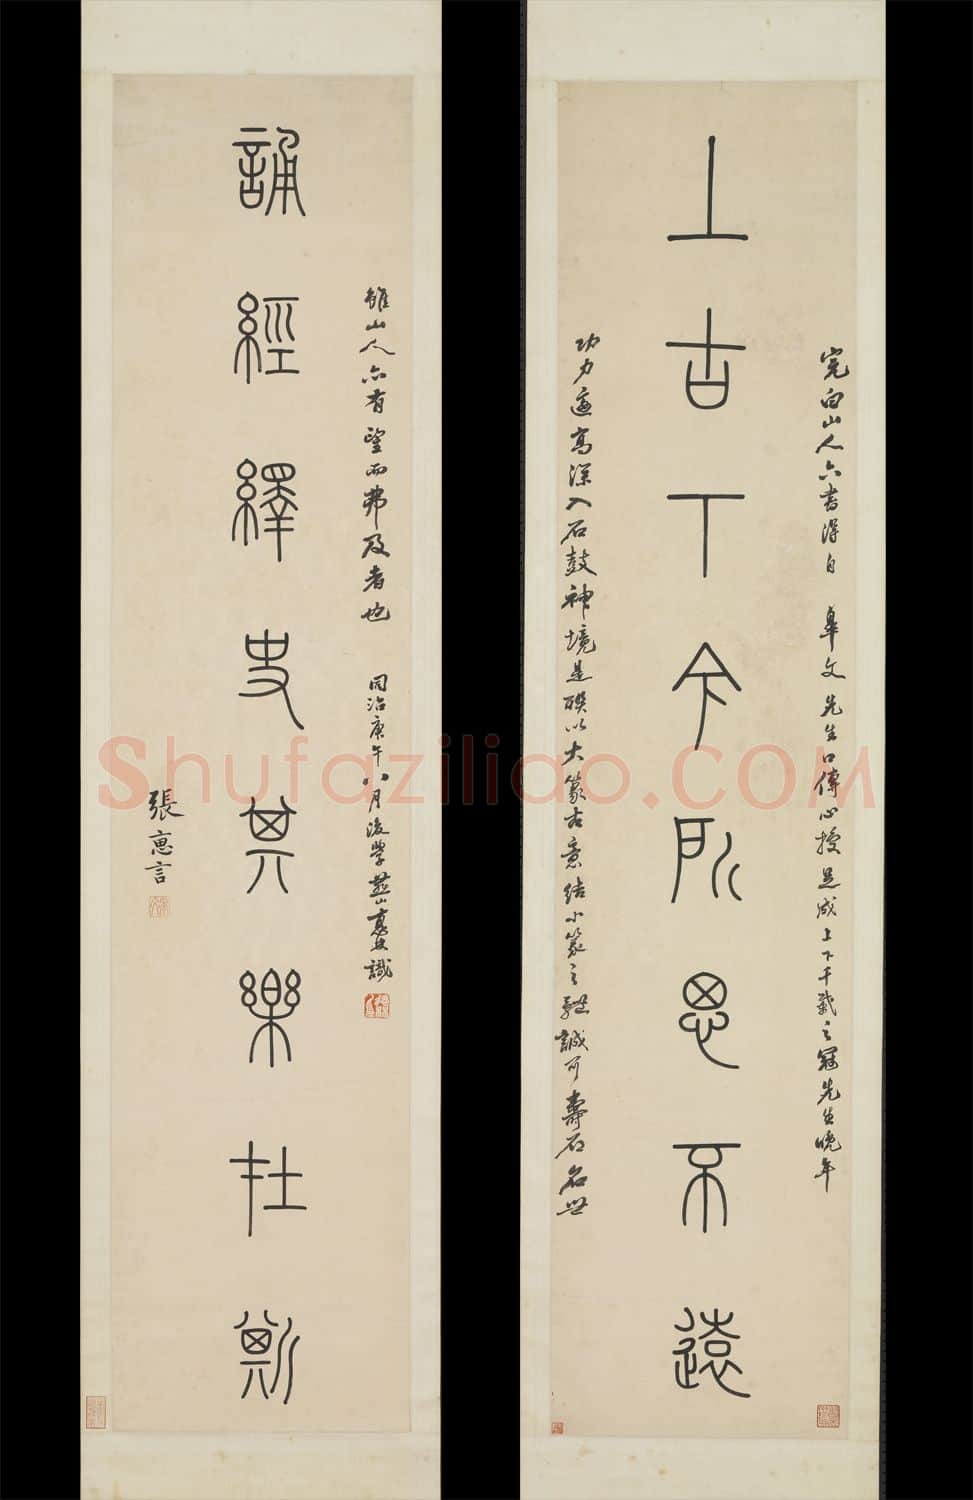 上古下今所思不遠
完白山人六書得自 皋文先生口傳心授是成上下千載之冠先生晚年
功力邃高深入石鼓神境是聯以大篆古意結小篆之軆誠可壽石名世
誦經繹史其樂在斯
雖山人亦有望而弗及者也 同治庚午八月後學 識
張惠言
Shufaziliao.com